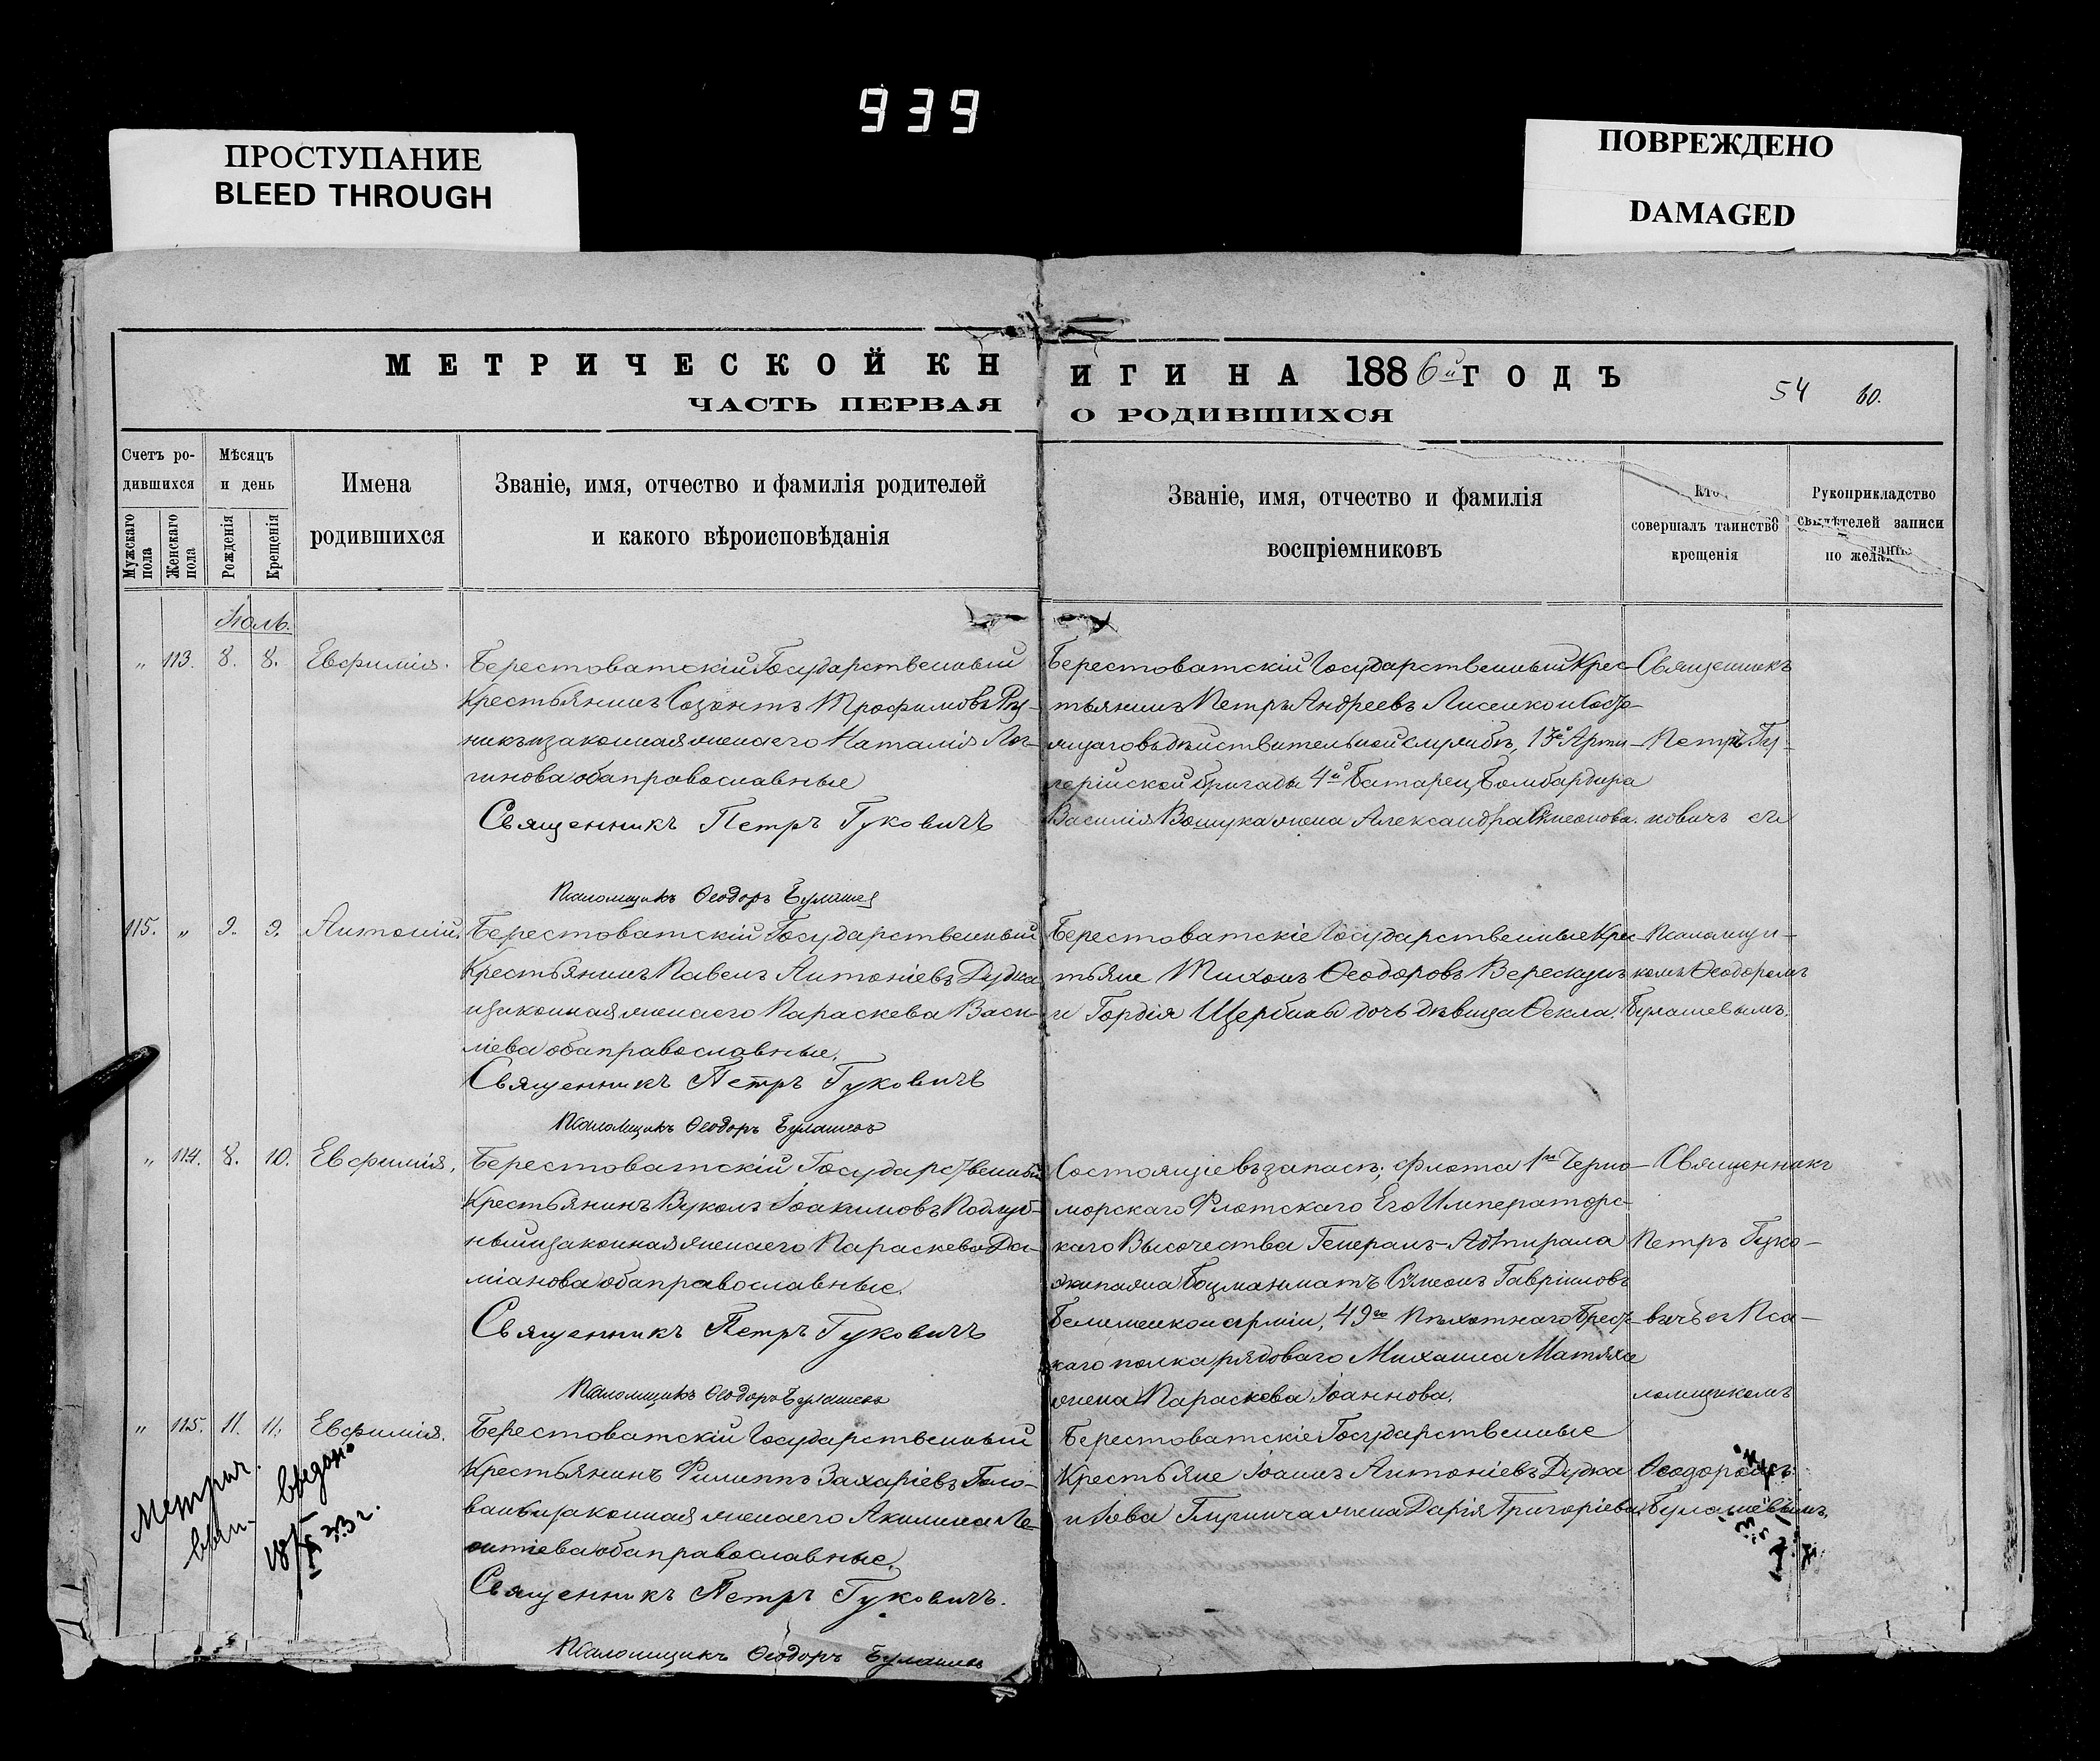 939
ПРОСТУПАНИЕ
BLEED THROUGH
ПОВРЕЖДЕНО
DAMAGED
МЕТРИЧЕСКОЙ КНИГИ НА 1886й ГОДЪ
54 60.
ЧАСТЬ ПЕРВАЯ О РОДИВШИХСЯ
Счетъ ро-
дившихся
Мужскаго пола
Женскаго пола
Мѣсяцъ
и день
Рожденія
Крещенія
Имена
родившихся
Званіе, имя, отчество и фамилія родителей
и какого вѣроисповѣданія
Званіе, имя, отчество и фамилія
воспріемниковъ
Кто
совершалъ таинство
крещенія
Рукоприкладство
свидѣтелей записи
по желанію
Іюль.
" 113. 8. 8. Евфимія.
Берестоватскій Государственный
Крестьянинъ Созонтъ Трофимовъ
никъ и законная жена его Наталія Лог-
гинова оба православные
Священникъ Петръ Гуковичъ
Псаломщикъ Ѳеодоръ Булашев
Берестоватскій Государственный Крес-
тьянинъ Петръ Андреевъ Лисенко и Состо-
ящаго въ дѣйствительной службѣ, Арти-
лерійской бригады 4й Батареи, Бомбардира
Василія жена Александра Симеонова.
Священникъ
Петръ Гу-
ковичъ съ
115. " 9. 9. Антоній.
Берестоватскій Государственный
Крестьянинъ Павелъ Антоніевъ Дудка
и законная жена его Параскева Васи-
ліева оба православные.
Священникъ Петръ Гуковичъ
Псаломщикъ Ѳеодоръ Булашевъ
Берестоватскіе Государственные Крес-
тьяне Тихонъ Ѳеодоровъ
и Гордія Щербины дочь дѣвица Ѳекла.
Псаломщи-
комъ Ѳеодоромъ
Булашевымъ.
" 114. 8. 10. Евфимія.
Берестоватскій Государственный
Крестьянинъ Вуколъ Іоакимовъ Поддуб-
ный и законная жена его Параскева Да-
міанова оба православные.
Священникъ Петръ Гуковичъ
Псаломщикъ Ѳеодоръ Булашевъ
Состоящіе въ запасѣ; флота 1го Черно-
морскаго Флотскаго Его Императорс-
каго Высочества Генералъ-Адмирала
экипажа Боцманматъ Симеонъ Гавріиловъ
и арміи, 49го Пѣхотнаго Брест-
каго полка рядоваго Михаила Матяха
жена Параскева Іоаннова.
Священникъ
Петръ Гуко-
вичъ съ Пса-
ломщикомъ
" 115. 11. 11. Евфимія.
Берестоватскій Государственный
Крестьянинъ Филиппъ Захаріевъ Голо-
вань и законная жена его Акилина Ле-
онтіева оба православные.
Священникъ Петръ Гуковичъ.
Псаломщикъ Ѳеодоръ Булашевъ
Берестоватскіе Государственные
Крестьяне Іоаннъ Антоніевъ Дудка
и Іова жена Дарія Григоріева.
Ѳеодоромъ
Булашевымъ.
Метрич.
вып. выдано
18/IX 23 г.